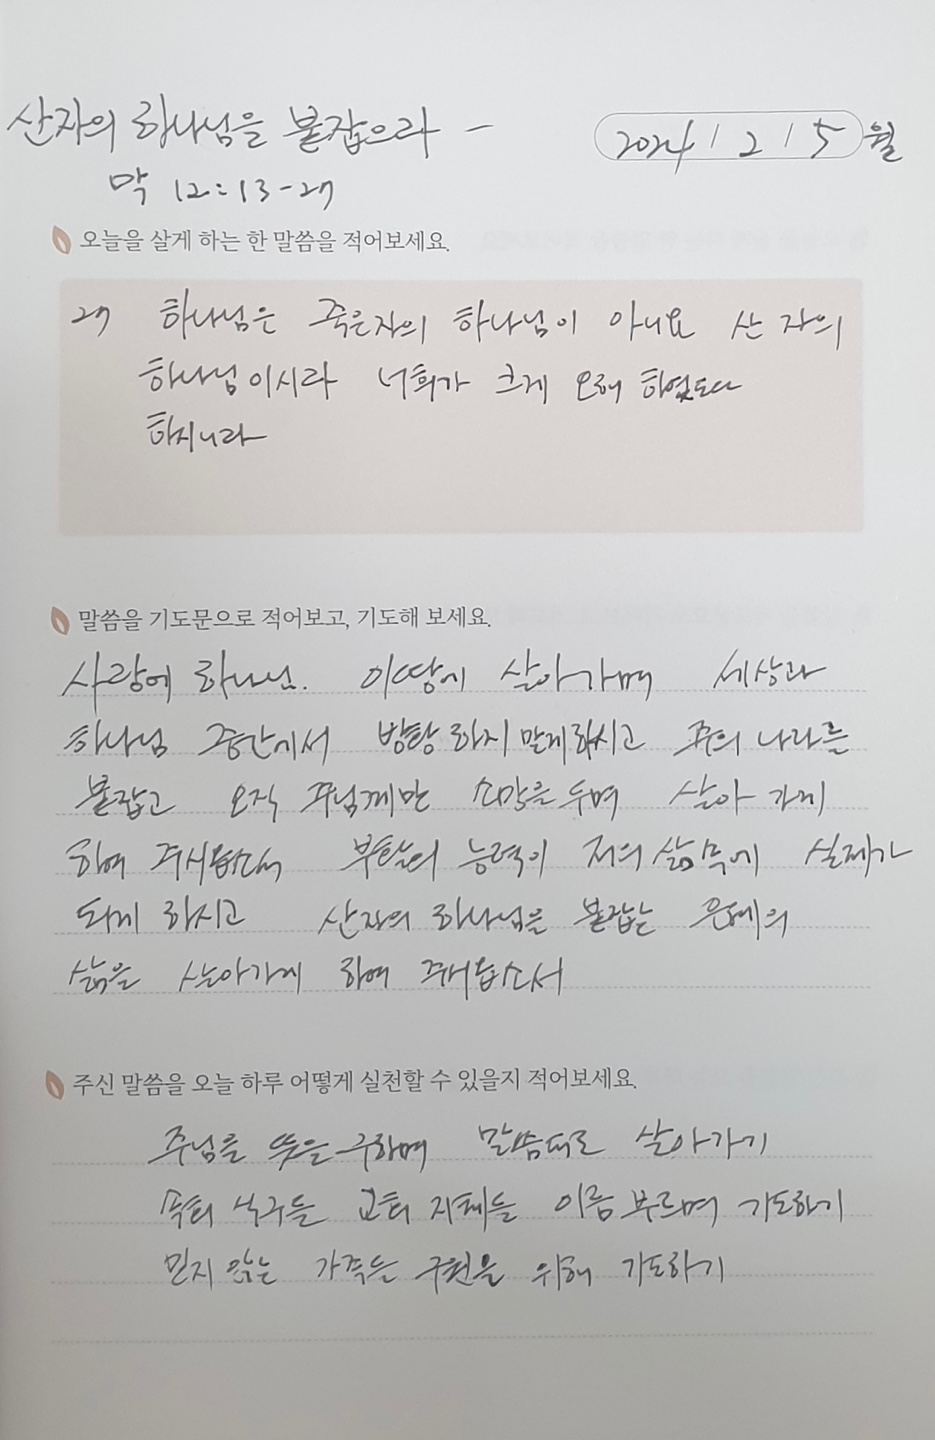 산자의 하나님을 붙잡으라 -
2024 / 2 / 5 월
막 12:13-27
오늘을 살게 하는 한 말씀을 적어보세요.
27 하나님은 죽은자의 하나님이 아니요 산 자의
하나님이시라 너희가 크게 오해 하였도다
하시니라
말씀을 기도문으로 적어보고, 기도해 보세요.
사랑에 하나님. 이땅에 살아가며 세상과
하나님 중간에서 방탕하지 말게하시고 주의 나라를
붙잡고 오직 주님께만 소망을 두며 살아 가게
하여 주시옵소서 부활의 능력이 저의 삶속에 실제가
되게 하시고 산자의 하나님을 붙잡는 은혜의
삶을 살아가게 하여 주시옵소서
주신 말씀을 오늘 하루 어떻게 실천할 수 있을지 적어보세요.
주님을 뜻을 구하며 말씀대로 살아가기
속회 식구들 교회 지체들 이름 부르며 기도하기
믿지 않는 가족들 구원을 위해 기도하기